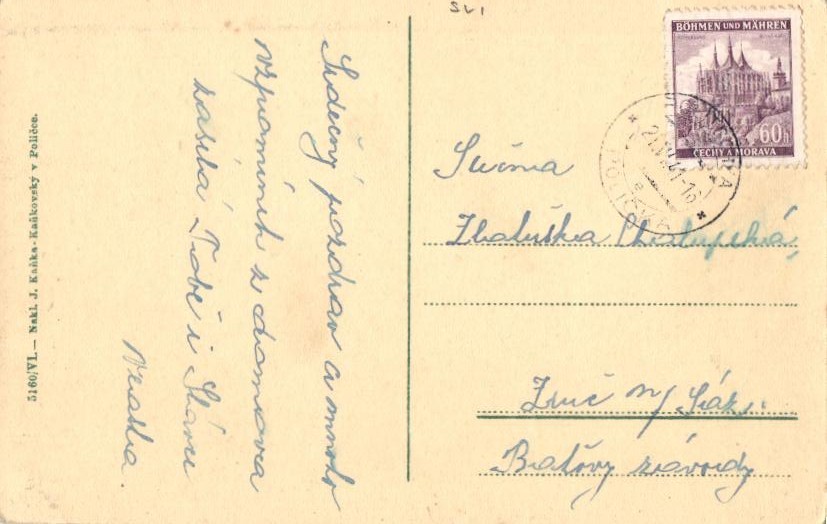 5160/VI.— Nakl. J. Kaňka-Kaňkovský v Poličce.
Srdečný pozdrav a mnoho
vzpomínek z domova
zasílá Tobě i Slávce
Vlasta.
SVI
BÖHMEN UND MÄHREN
60h
ČECHY A MORAVA
Slečna
Zbatuška
Zruč n/ Sáz.
Baťovy závody